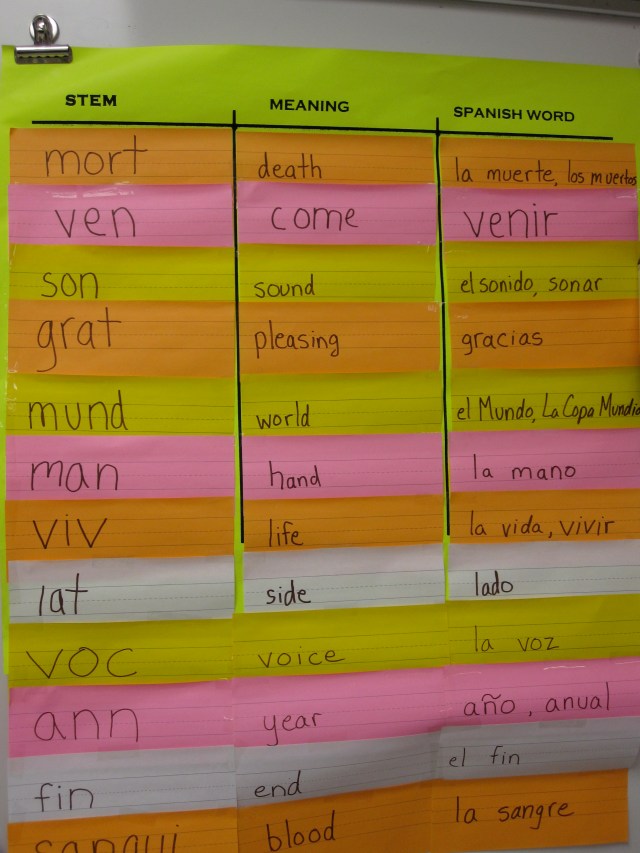 STEM MEANING SPANISH WORD
mort death la muerte, los muertos
ven come venir
son sound el sonido, sonar
grat pleasing gracias
mund world el Mundo, La Copa Mundia
man hand la mano
viv life la vida, vivir
lat side lado
voc voice la voz
ann year año, anual
fin end el fin
sangui blood la sangre